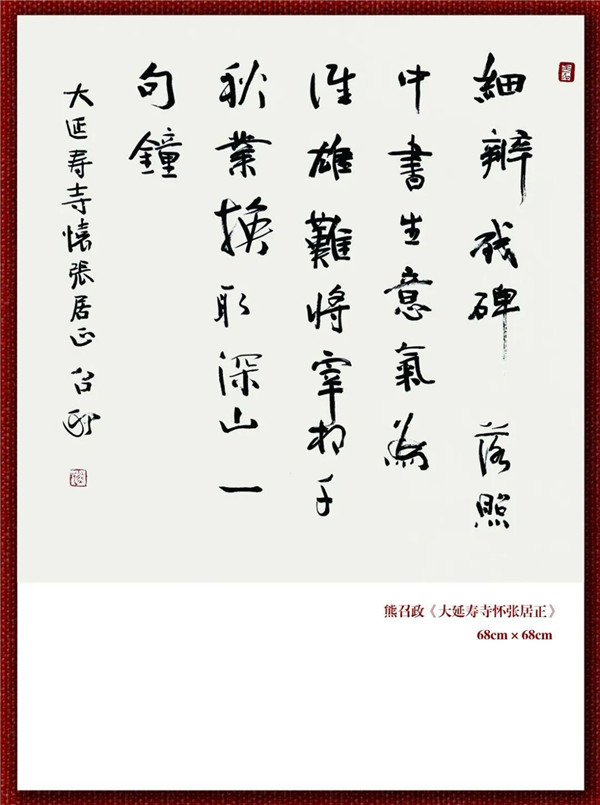 細辨残碑落照
中書生意氣為
谁雄難將宰相千
秋業換取深山一
句鐘
大延寿寺懷張居正 召政
熊召政《大延寿寺怀张居正》
68cm × 68cm